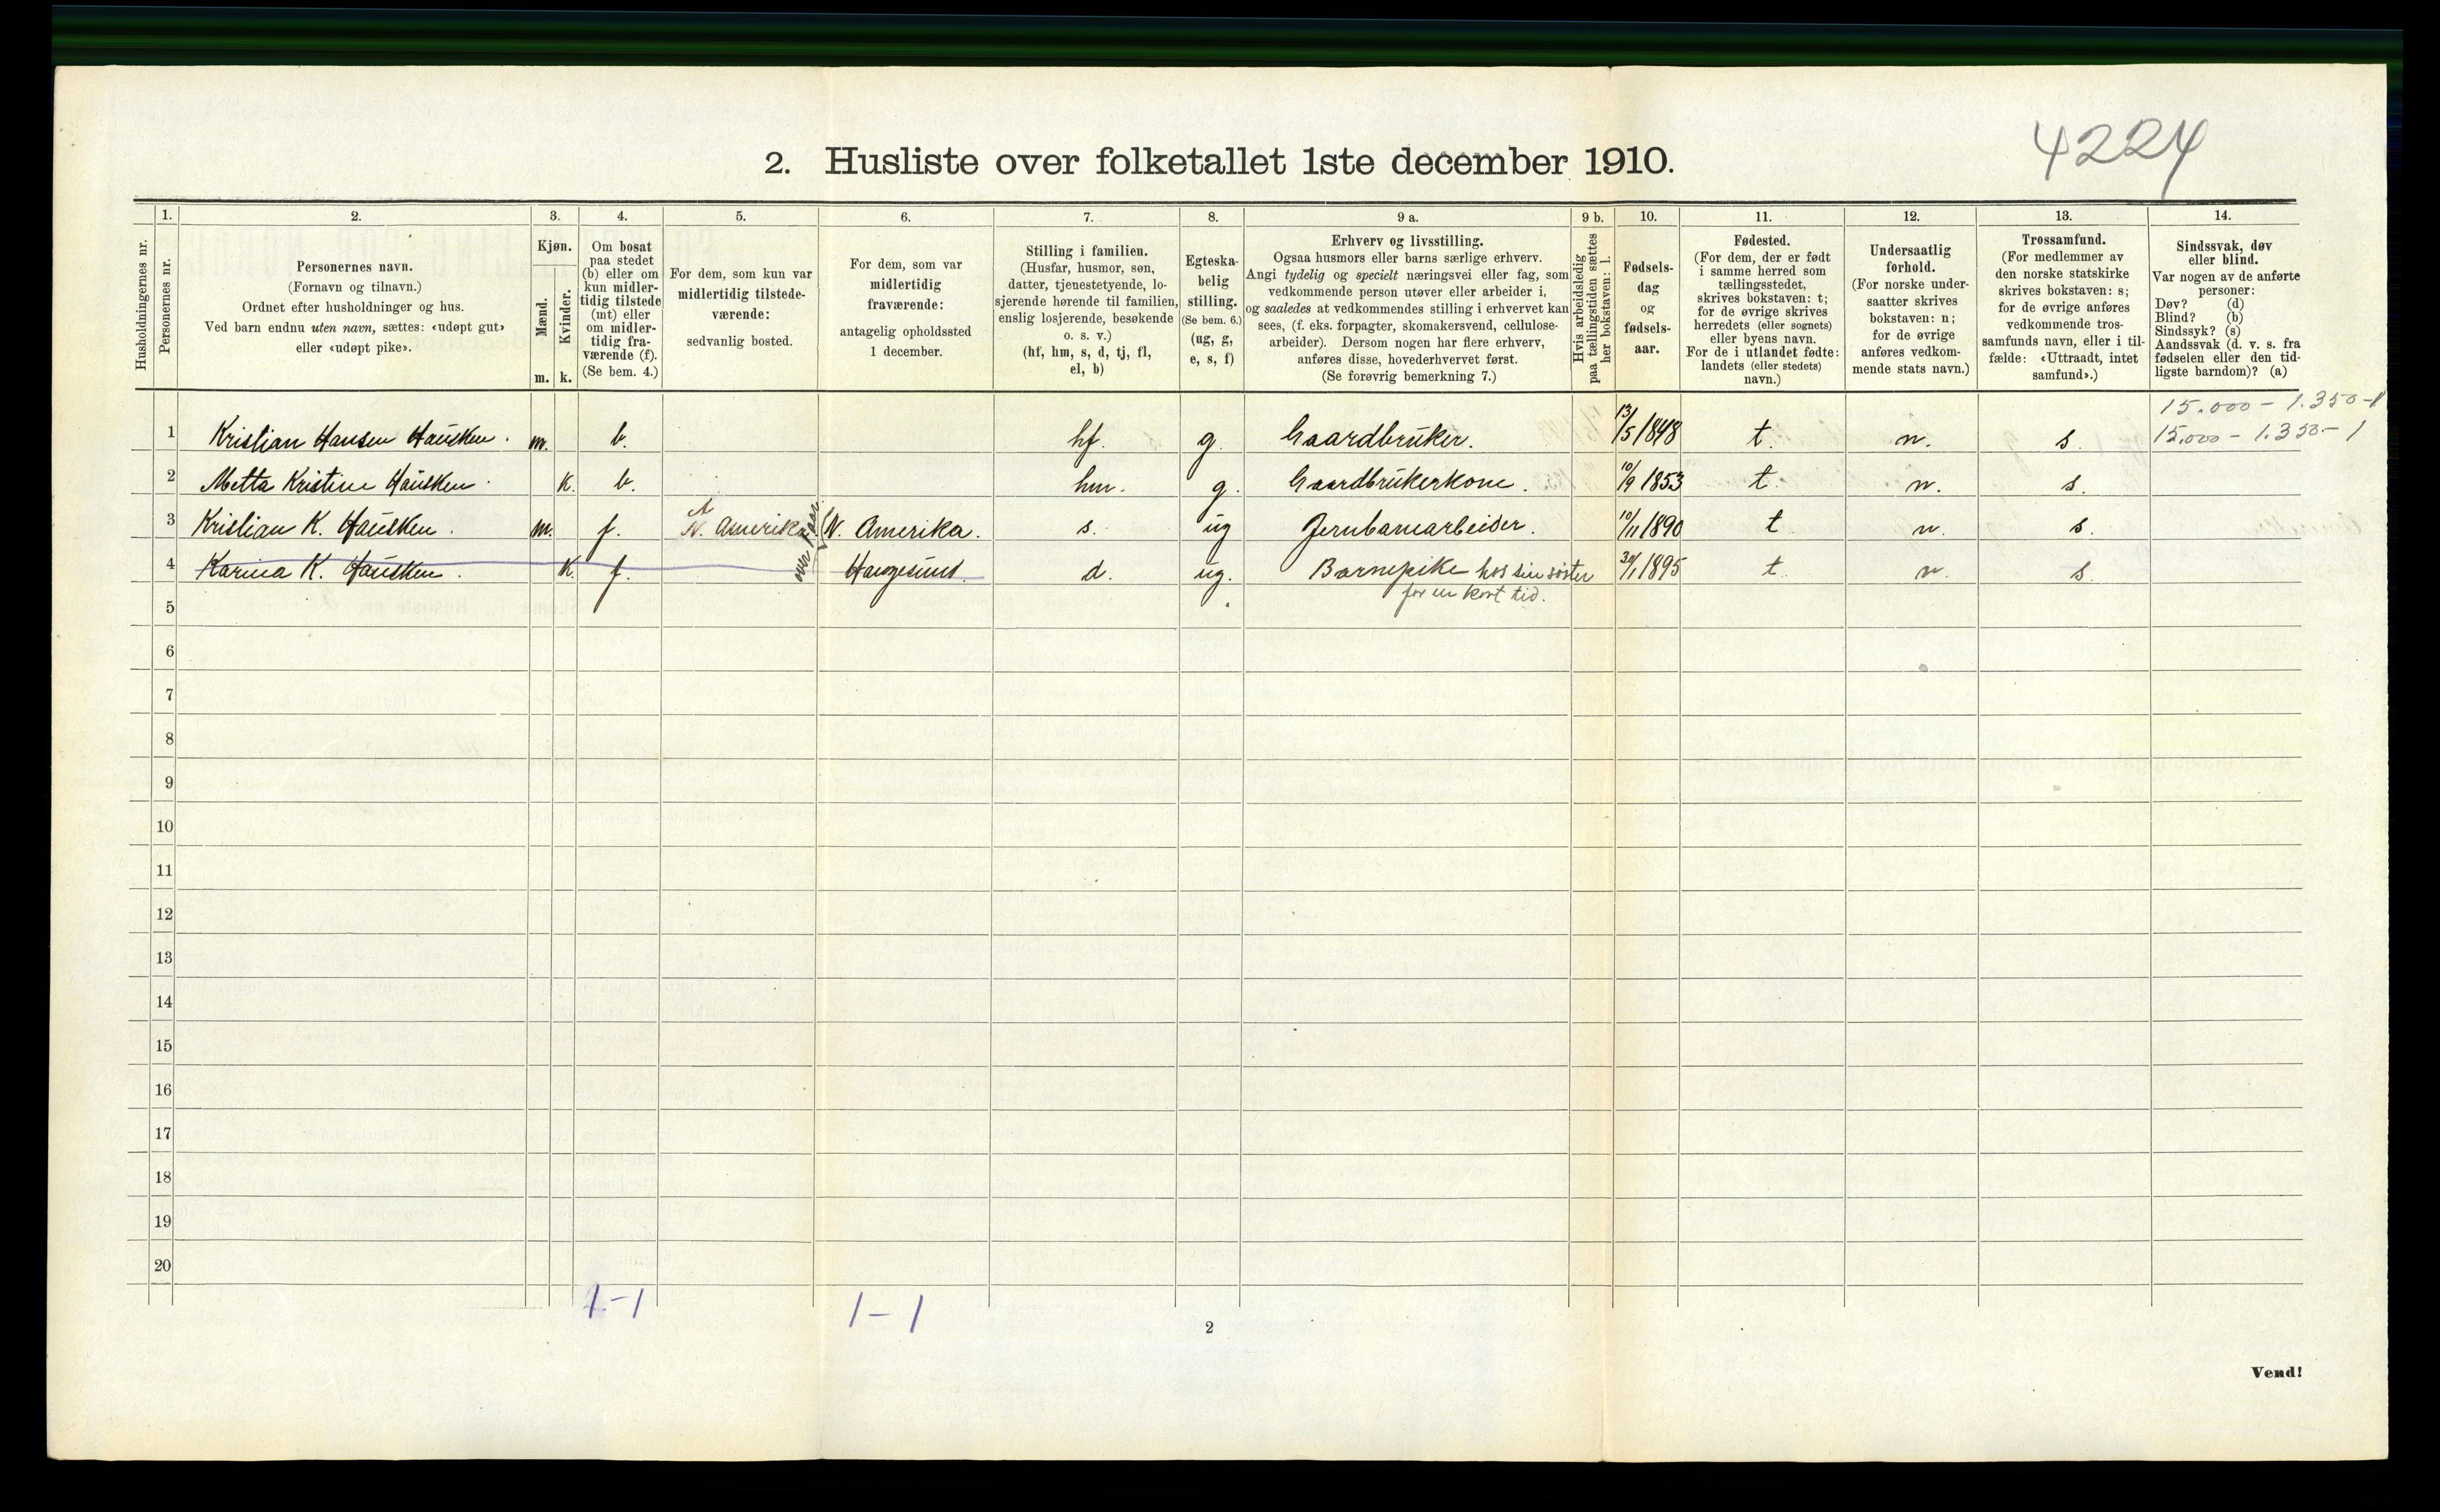 4224
2. Husliste over folketallet 1ste december 1910.
Husholdningernes nr.
1.
Personernes nr.
2.
Personernes navn.
(Fornavn og tilnavn.)
Ordnet efter husholdninger og hus.
Ved barn endnu uten navn, sættes: «udøpt gut»
eller «udøpt pike».
3.
Kjøn.
Mænd.
Kvinder.
m. k.
4.
Om bosat
paa stedet
(b) eller om
kun midler-
tidig tilstede
(mt) eller
om midler-
tidig fra-
værende (f).
(Se bem. 4.)
5.
For dem, som kun var
midlertidig tilstede-
værende:
sedvanlig bosted.
6.
For dem, som var
midlertidig
fraværende:
antagelig opholdssted
1 december.
7.
Stilling i familien.
(Husfar, husmor, søn,
datter, tjenestetyende, lo-
sjerende hørende til familien,
enslig losjerende, besøkende
o. s. v.)
(hf, hm, s, d, tj, fl,
el, b)
8.
Egteska-
belig
stilling.
(Se bem. 6.)
(ug, g,
e, s, f)
9 a.
Erhverv og livsstilling.
Ogsaa husmors eller barns særlige erhverv.
Angi tydelig og specielt næringsvei eller fag, som
vedkommende person utøver eller arbeider i,
og saaledes at vedkommendes stilling i erhvervet kan
sees, (f. eks. forpagter, skomakersvend, cellulose-
arbeider). Dersom nogen har flere erhverv,
anføres disse, hovederhvervet først.
(Se forøvrig bemerkning 7.)
9 b.
Hvis arbeidsledig
paa tællingstiden sættes
her bokstaven: l.
10.
Fødsels-
dag
og
fødsels-
aar.
11.
Fødested.
(For dem, der er født
i samme herred som
tællingsstedet,
skrives bokstaven: t;
for de øvrige skrives
herredets (eller sognets)
eller byens navn.
For de i utlandet fødte:
landets (eller stedets)
navn.)
12.
Undersaatlig
forhold.
(For norske under-
saatter skrives
bokstaven: n;
for de øvrige
anføres vedkom-
mende stats navn.)
13.
Trossamfund.
(For medlemmer av
den norske statskirke
skrives bokstaven: s;
for de øvrige anføres
vedkommende tros-
samfunds navn, eller i til-
fælde: «Uttraadt, intet
samfund».)
14.
Sindssvak, døv
eller blind.
Var nogen av de anførte
personer:
Døv? (d)
Blind? (b)
Sindssyk? (s)
Aandssvak (d. v. s. fra
fødselen eller den tid-
ligste barndom)? (a)
15.000 - 1.350-1
1 Kristian Hansen Hausken. m. b. hf. g. Gaardbruker. 13/5 1848 t. n. s. 15.000 - 1.350 - 1
2 Metta Kristine Hausken. k. b. hm. g. Gaardbrukerkone. 10/9 1853 t. n. s.
3 Kristian K. Hausken. m. f. N. Amerika over 1 aar (N. Amerika. s. ug Jernbanearbeider. 10/11 1890 t n. s.
4 Karina K. Hausken. k. f. Haugesund. d. ug. Barnepike hos sin søster 30/1 1895 t. n. s.
for en kort tid.
5
6
7
8
9
10
11
12
13
14
15
16
17
18
19
20
1-1
1-1
2
Vend!